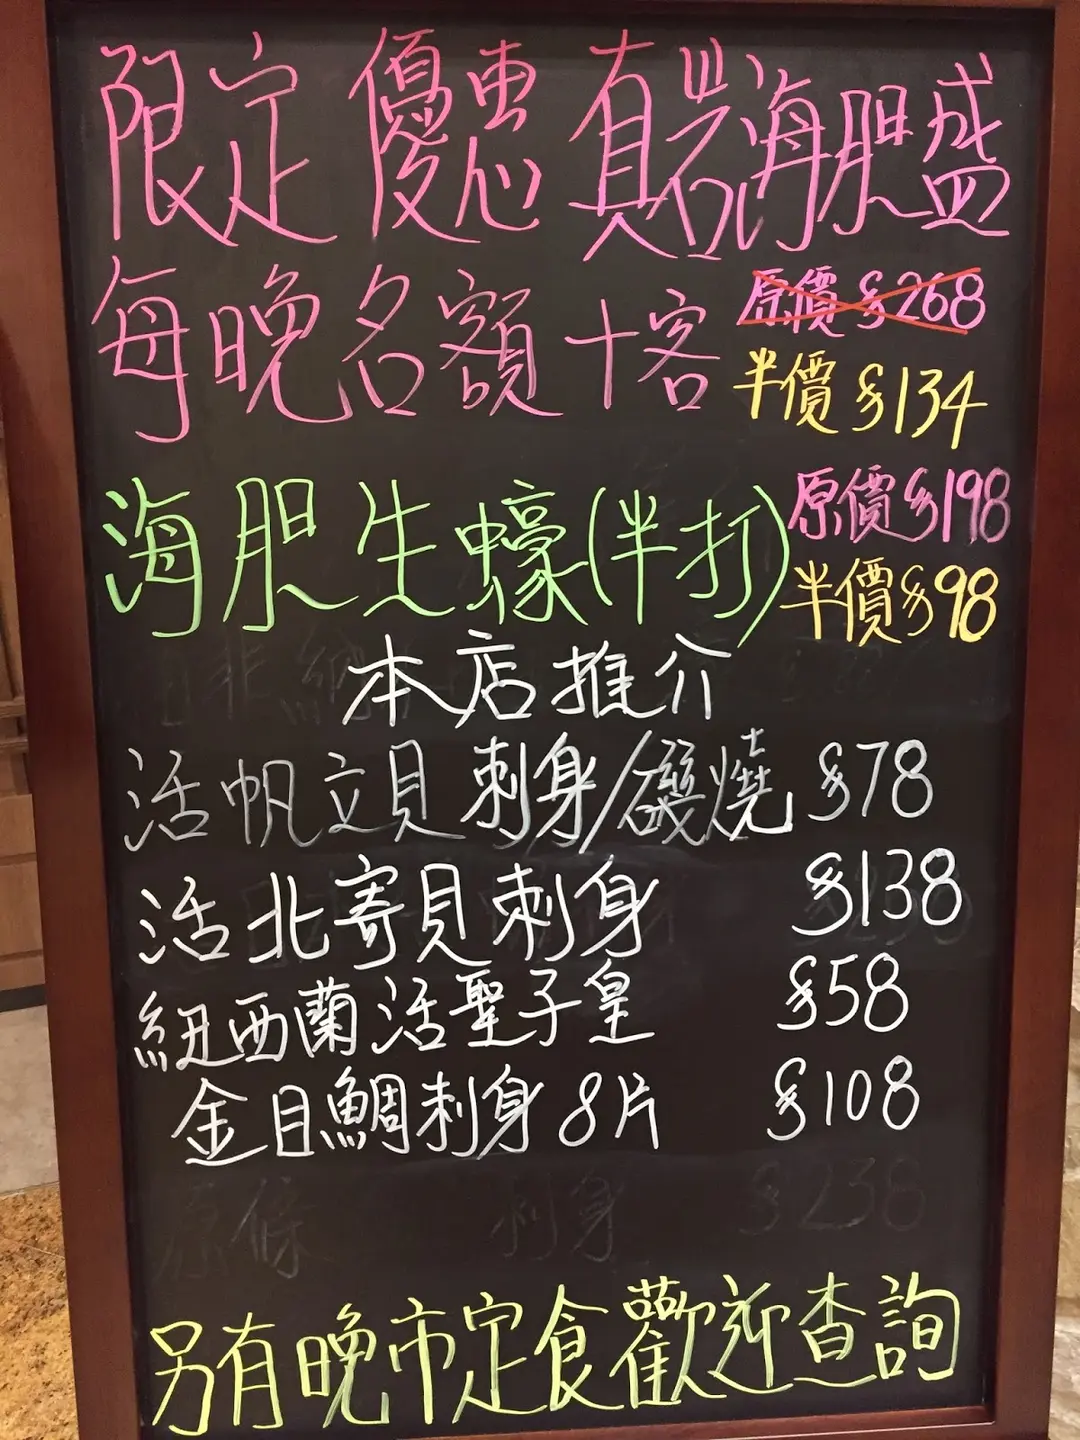 限定 優惠 真品海胆盛
每晚名額十客 原價 $268
半價 $134
海胆生蠔(半打) 原價 $198
半價 $98
本店推介
活帆立貝刺身/磯燒 $78
活北寄貝刺身 $138
紐西蘭活聖子皇 $58
金目鯛刺身 8片 $108
刺身 $238
另有晚市定食歡迎查詢